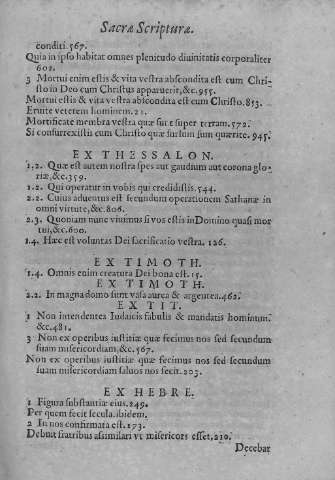 Sacræ Scripturæ.
conditi. 567.
Quia in ipso habitat omnes plenitudo diuinitatis corporaliter
602.
3 Mortui enim estis & vita vestra abscondita est cum Chri-
sto in Deo cum Christus apparuerit, &c. 955.
Mortui estis & vita vestra abscondita est cum Christo. 853.
Eruite veterem hominem. 21.
Mortificate membra vestra quæ sut super terram. 572.
Si consurrexistis cum Christo quæ sursum sunt quærite. 945.
EX THESSALON.
1.2. Quæ est autem nostra spes aut gaudium aut corona glo-
riæ, &c. 359.
1.2. Qui operatur in vobis qui credidistis. 544.
2.2. Cuius aduentus est secundum operationem Sathanæ in
omni virtute, &c. 806.
2.3. Quoniam nunc viuimus si vos estis in Domino quasi mor
tui, &c. 600.
1.4. Hæc est voluntas Dei sacrificatio vestra. 126.
EX TIMOTH.
1.4. Omnis enim creatura Dei bona est. 15.
EX TIMOTH.
2.2. In magna domo sunt vasa aurea & argentea. 462.
EX TIT.
1 Non intendentes Iudaicis fabulis & mandatis hominum.
&c. 481.
3 Non ex operibus iustitiæ quæ fecimus nos sed secundum
suam misericordiam, &c. 567.
Non ex operibus iustitiæ quæ fecimus nos sed secundum
suam misericordiam saluos nos fecit. 203.
EX HEBRE.
1 Figura substantiæ eius. 849.
Per quem fecit secula. ibidem.
2 In nos confirmata est. 173.
Debuit fratribus assimilari vt misericors esset. 210.
Decebar